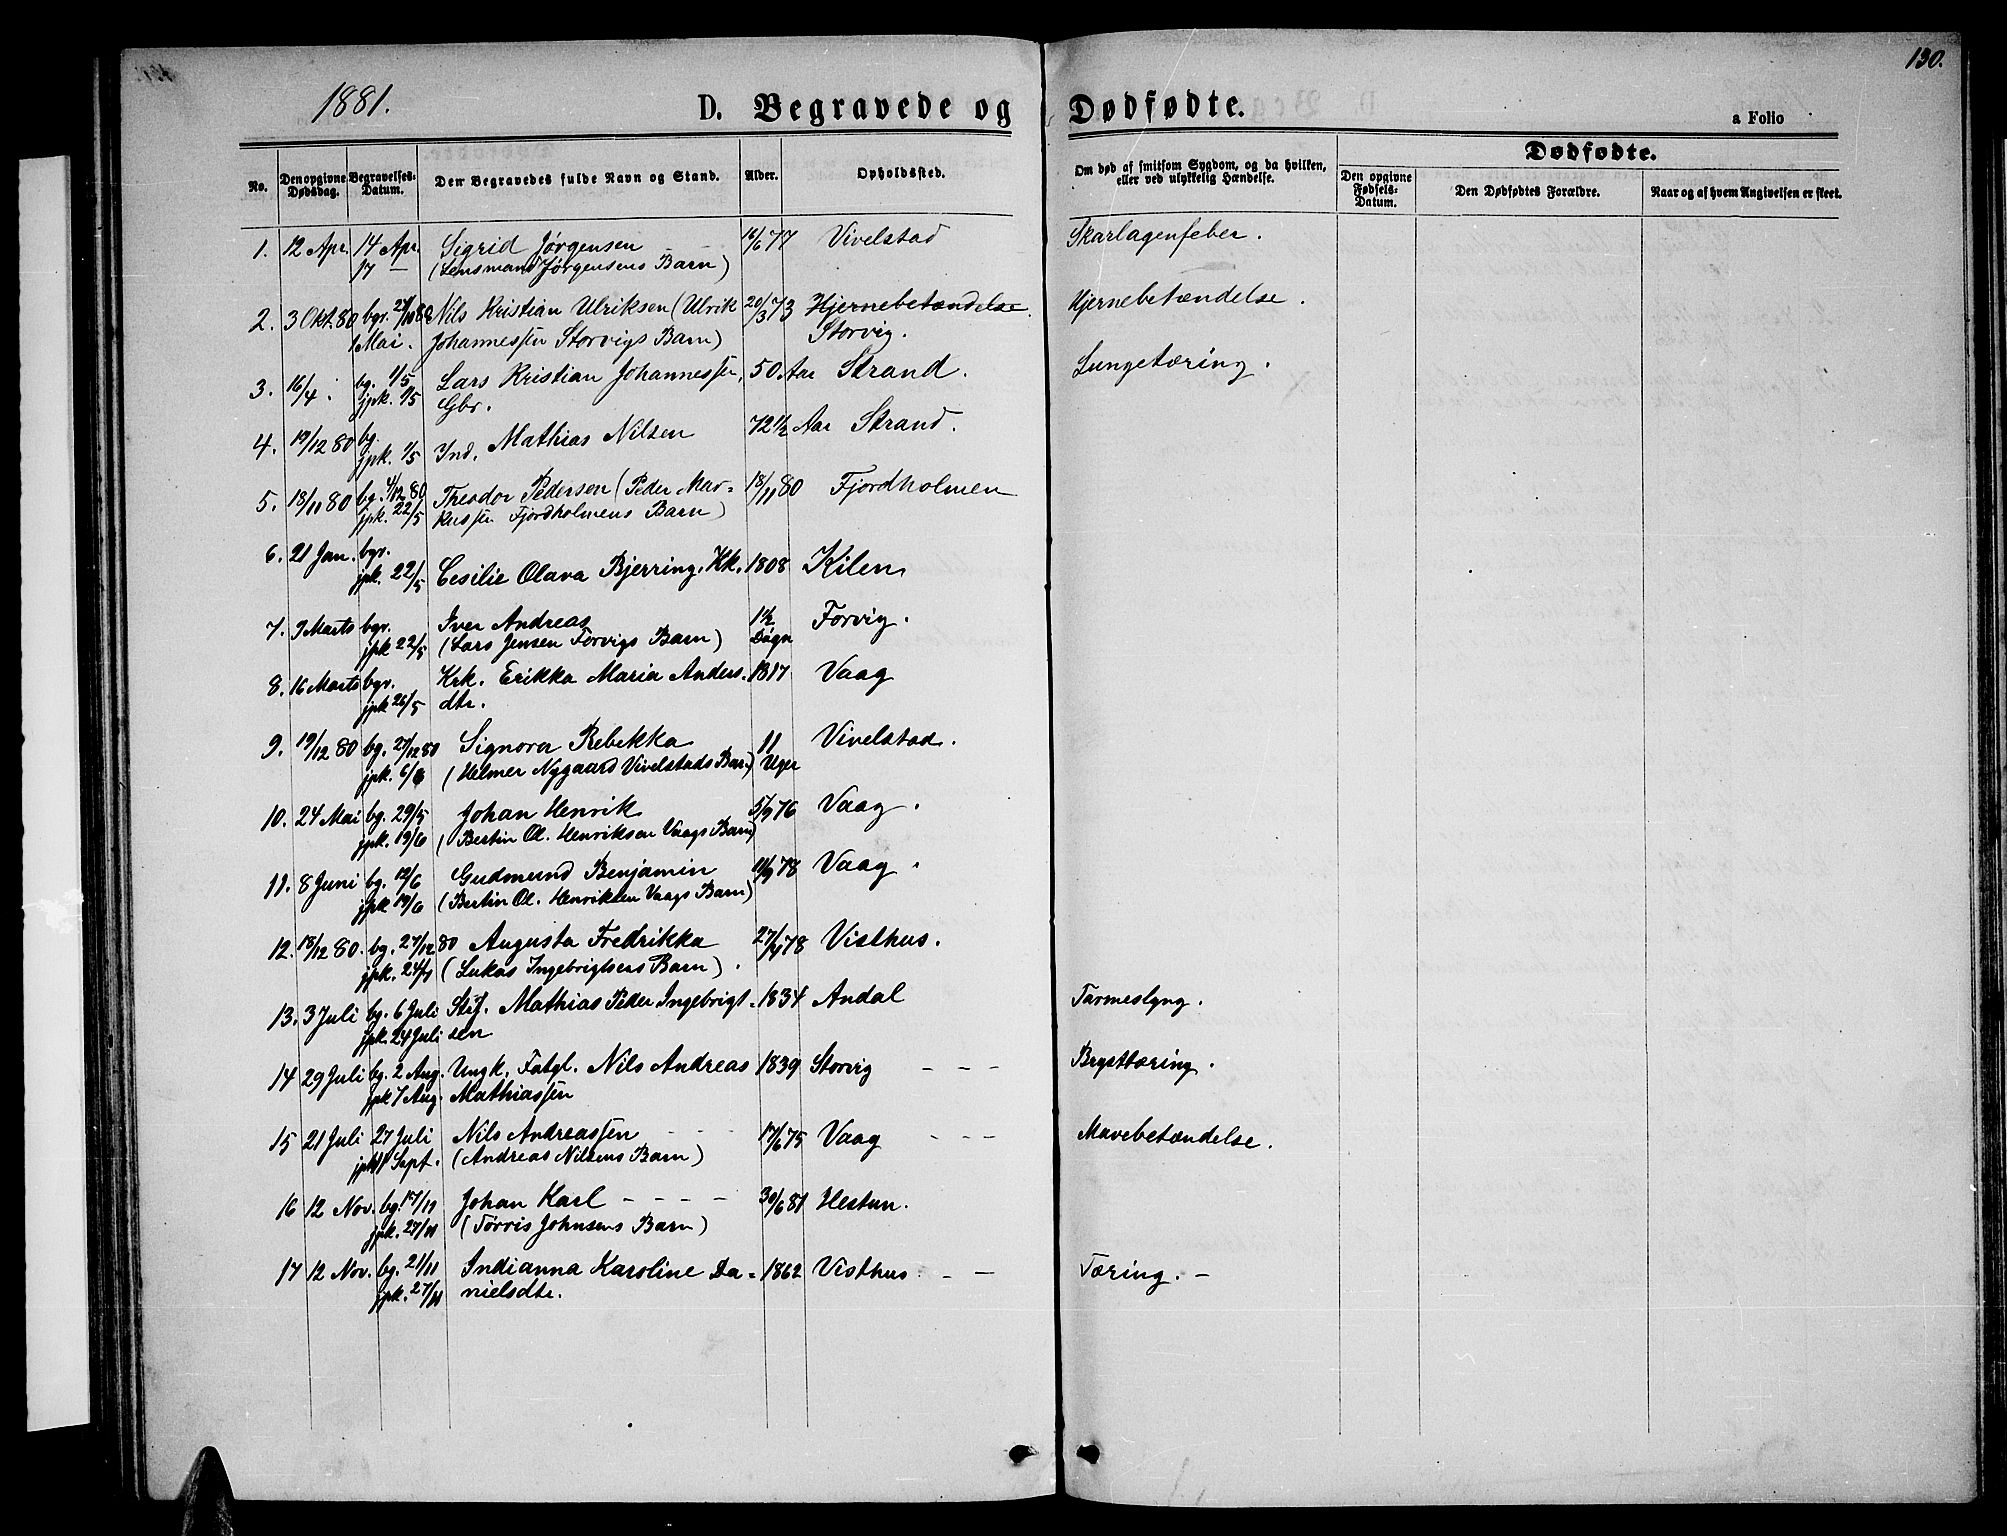 130.
1881.
D. Begravede og Dødfødte.
a Folio
No.
Den opgivne Dødsdag.
Begravelses-Datum.
Den Begravedes fulde Navn og Stand.
Alder.
Opholdssted.
Om død af smitsom Sygdom, og da hvilken, eller ved ulykkelig Hændelse.
Dødfødte.
Den opgivne Fødsels-Datum.
Den Dødfødtes Forældre.
Naar og af hvem Angivelsen er skeet.
1. 12 Apr. 14 Apr. Sigrid Jørgensen 16/6 77 Vivelstad Skarlagenfeber.
17 — (Lensmand Jørgensens Barn)
2. 3 Okt. 80 bgr. 27/10 80 Nils Kristian Ulriksen (Ulrik 20/3 73 Hjernebetændelse Hjernebetændelse.
1 Mai. Johannessen Storvigs Barn) Storvig.
3. 16/4. bg. 1/5 Lars Kristian Johannessen, 50 Aar Strand. Lungetæring.
jpk. 1/5 Gbr.
4. 19/12 80 bg. Ind. Mathias Nilsen 72 1/2 Aar Strand.
jpk. 1/5
5. 18/11 80 bg. 4/12 80 Theodor Pedersen (Peder Mar= 18/11 80 Fjordholmen
jpk. 22/5 kussen Fjordholmens Barn)
6. 21 Jan. bgr. Cesilie Olava Bjerring, Kk. 1808 Kilen
jpk. 22/5
7. 9 Marts bgr. Iver Andreas 1 1/2 Forvig.
jpk 22/5 (Lars Jensen Forvigs Barn) Døgn
8. 16 Marts bgr. Krk. Erikka Maria Anders- 1817 Vaag
jpk 26/5 dtr.
9. 19/12 80 bg. 27/12 80 Signora Rebekka 11 Vivelstad.
jpk. 6/6 (Helmer Nygaard Vivelstads Barn) Uger
10. 24 Mai bg. 29/5 Johan Henrik 5/9 76 Vaag.
jpk. 19/6 (Bertin Ol. Henriksen Vaags Barn)
11. 8 Juni bg. 12/6 Gudmund Benjamin 11/9 78 Vaag.
jpk 19/6 (Bertin Ol. Henriksen Vaags Barn)
12. 18/12 80. bg. 27/12 80 Augusta Fredrikka 27/4 78 Visthus.
jpk. 24/7 (Lukas Ingebrigtsens Barn).
13. 3 Juli bg. 6 Juli Stif. Mathias Peder Ingebrigt- 1834 Andal Tarmeslyng.
jpk. 24 Juli sen
14 29 Juli bg. 2 Aug. Ungk. Fatgl. Nils Andreas 1839 Storvig — — — Brysttæring.
jpk 7 Aug. Mathiassen
15 21 Juli 27 Juli Nils Andreassen 17/6 75 Vaag — — — Mavebetændelse.
jpk 11 Sept. (Andreas Nilsens Barn)
16 12 Nov. bg. 17/11 Johan Karl — — — — 30/6 81 Hestun.
jpk. 27/11 (Tørris Johnsens Barn)
17 12 Nov. bg. 21/11 Indianna Karoline Da= 1862 Visthus. — — Tæring. —
jpk. 27/11 nielsdtr.